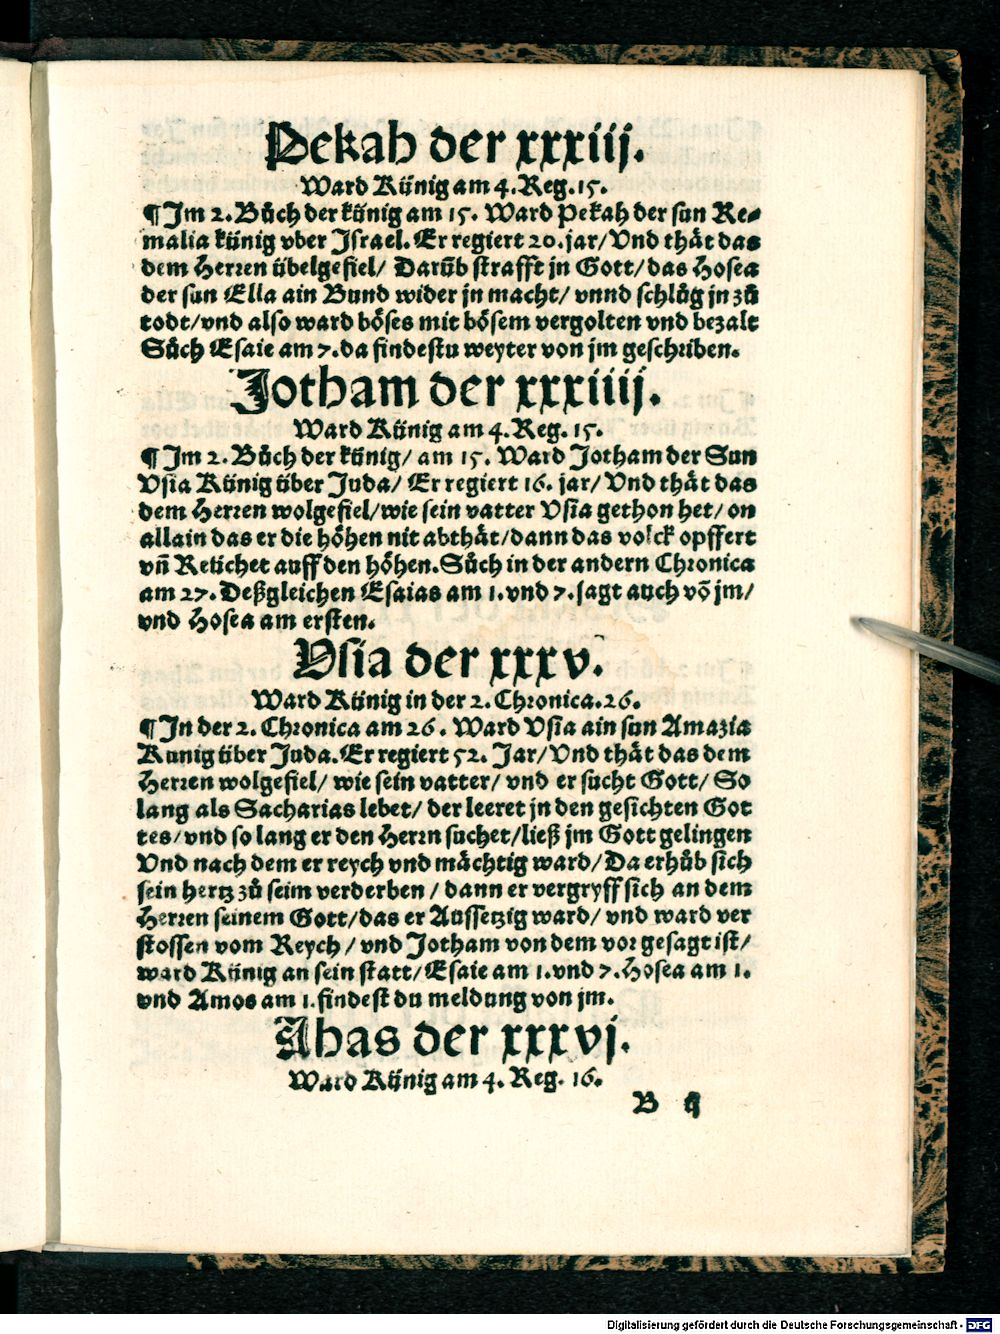 Pekah der xxxiij.
Ward Künig am 4. Reg. 15.
¶ Im 2. Bůch der künig am 15. Ward Pekah der sun Re⸗
malia künig vber Jsrael. Er regiert 20. jar/ Vnd thät das
dem Herren übelgefiel/ Darüb strafft jn Gott/ das Hosea
der sun Ella ain Bund wider jn macht/ vnnd schlůg jn zů
todt/ vnd also ward böses mit bösem vergolten vnd bezalt
Sůch Esaie am 7. da findestu weyter von jm geschriben.
Jotham der xxxiiij.
Ward Künig am 4. Reg. 15.
¶ Im 2. Bůch der künig/ am 15. Ward Jotham der Sun
Vsia Künig über Juda/ Er regiert 16. jar/ Vnd thät das
dem Herren wolgefiel/ wie sein vatter Vsia gethon het/ on
allain das er die höhen nit abthät/ dann das volck opffert
vñ Reüchet auff den höhen. Sůch in der andern Chronica
am 27. Deßgleichen Esaias am 1. vnd 7. sagt auch võ jm/
vnd Hosea am ersten.
Vsia der xxxv.
Ward Künig in der 2. Chronica. 26.
¶ In der 2. Chronica am 26. Ward Vsia ain sun Amazia
Kunig über Juda. Er regiert 52. Jar/ Vnd thät das dem
Herren wolgefiel/ wie sein vatter/ vnd er sucht Gott/ So
lang als Sacharias lebet/ der leeret jn den gesichten Got
tes/ vnd so lang er den Herrn suchet/ ließ jm Gott gelingen
Vnd nach dem er reych vnd mächtig ward/ Da erhůb sich
sein hertz zů seim verderben/ dann er vergryff sich an dem
Herren seinem Gott/ das er Aussetzig ward/ vnd ward ver
stossen vom Reych/ vnd Jotham von dem vor gesagt ist/
ward Künig an sein statt/ Esaie am 1. vnd 7. Hosea am 1.
vnd Amos am 1. findest du meldung von jm.
Ahas der xxxvj.
Ward Künig am 4. Reg. 16.
B ij
Digitalisierung gefördert durch die Deutsche Forschungsgemeinschaft - DFG